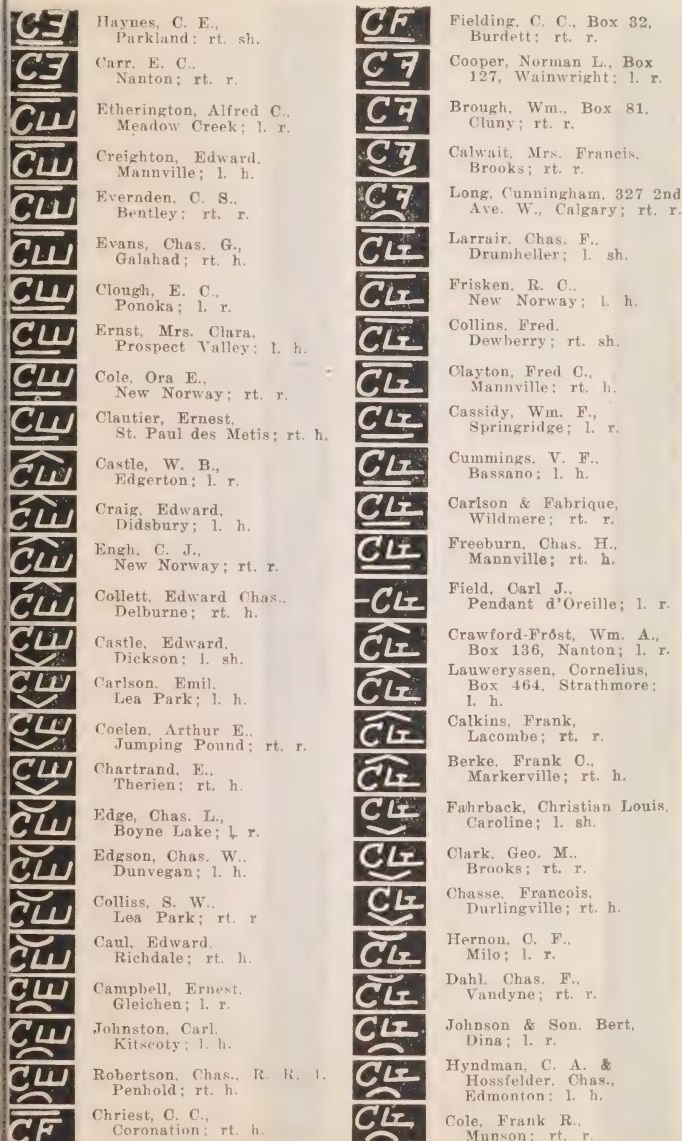 Haynes, C. E.,
Parkland; rt. sh.
Carr, E. C.,
Nanton; rt. r.
Etherington, Alfred C.,
Meadow Creek; l. r.
Creighton, Edward,
Mannville; l. h.
Evernden, C. S.,
Bentley; rt. r.
Evans, Chas. G.,
Galahad; rt. h.
Clough, E. C.,
Ponoka; l. r.
Ernst, Mrs. Clara,
Prospect Valley; l. h.
Cole, Ora E.,
New Norway; rt. r.
Clautier, Ernest,
St. Paul des Metis; rt. h.
Castle, W. B.,
Edgerton; l. r.
Craig, Edward,
Didsbury; l. h.
Engh, C. J.,
New Norway; rt. r.
Collett, Edward Chas.,
Delburne; rt. h.
Castle, Edward,
Dickson; l. sh.
Carlson, Emil,
Lea Park; l. h.
Coelen, Arthur E.,
Jumping Pound; rt. r.
Chartrand, E.,
Therien; rt. h.
Edge, Chas. L.,
Boyne Lake; l. r.
Edgson, Chas. W.,
Dunvegan; l. h.
Colliss, S. W.,
Lea Park; rt. r
Caul, Edward,
Richdale; rt. h.
Campbell, Ernest,
Gleichen; l. r.
Johnston, Carl,
Kitscoty; l. h.
Robertson, Chas., R. R. 1,
Penhold; rt. h.
Chriest, C. C.,
Coronation; rt. h.
Fielding, C. C., Box 32,
Burdett; rt. r.
Cooper, Norman L., Box
127, Wainwright; l. r.
Brough, Wm., Box 81,
Cluny; rt. r.
Calwait, Mrs. Francis,
Brooks; rt. r.
Long, Cunningham, 327 2nd
Ave. W., Calgary; rt. r.
Larrair, Chas. F.,
Drumheller; l. sh.
Frisken, R. C.,
New Norway; l. h.
Collins, Fred,
Dewberry; rt. sh.
Clayton, Fred C.,
Mannville; rt. h.
Cassidy, Wm. F.,
Springridge; l. r.
Cummings, V. F.,
Bassano; l. h.
Carlson & Fabrique,
Wildmere; rt. r.
Freeburn, Chas. H.,
Mannville; rt. h.
Field, Carl J.,
Pendant d'Oreille; l. r.
Crawford-Frôst, Wm. A.,
Box 136, Nanton; l. r.
Lauweryssen, Cornelius,
Box 464, Strathmore;
l. h.
Calkins, Frank,
Lacombe; rt. r.
Berke, Frank C.,
Markerville; rt. h.
Fahrback, Christian Louis,
Caroline; l. sh.
Clark, Geo. M.,
Brooks; rt. r.
Chasse, Francois,
Durlingville; rt. h.
Hernon, C. F.,
Milo; l. r.
Dahl, Chas. F.,
Vandyne; rt. r.
Johnson & Son, Bert,
Dina; l. r.
Hyndman, C. A. &
Hossfelder, Chas.,
Edmonton; l. h.
Cole, Frank R.,
Munson; rt. r.